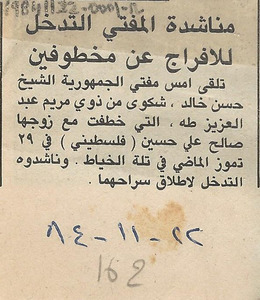 19841122-0001-12
مناشدة المفتي التدخل
للافراج عن مخطوفين
تلقى امس مفتي الجمهورية الشيخ
حسن خالد، شكوى من ذوي مريم عبد
العزيز طه، التي خطفت مع زوجها
صالح علي حسين (فلسطيني) في ٢٩
تموز الماضي في تلة الخياط. وناشدوه
التدخل لاطلاق سراحهما.
٢٢-١١-٨٤
162